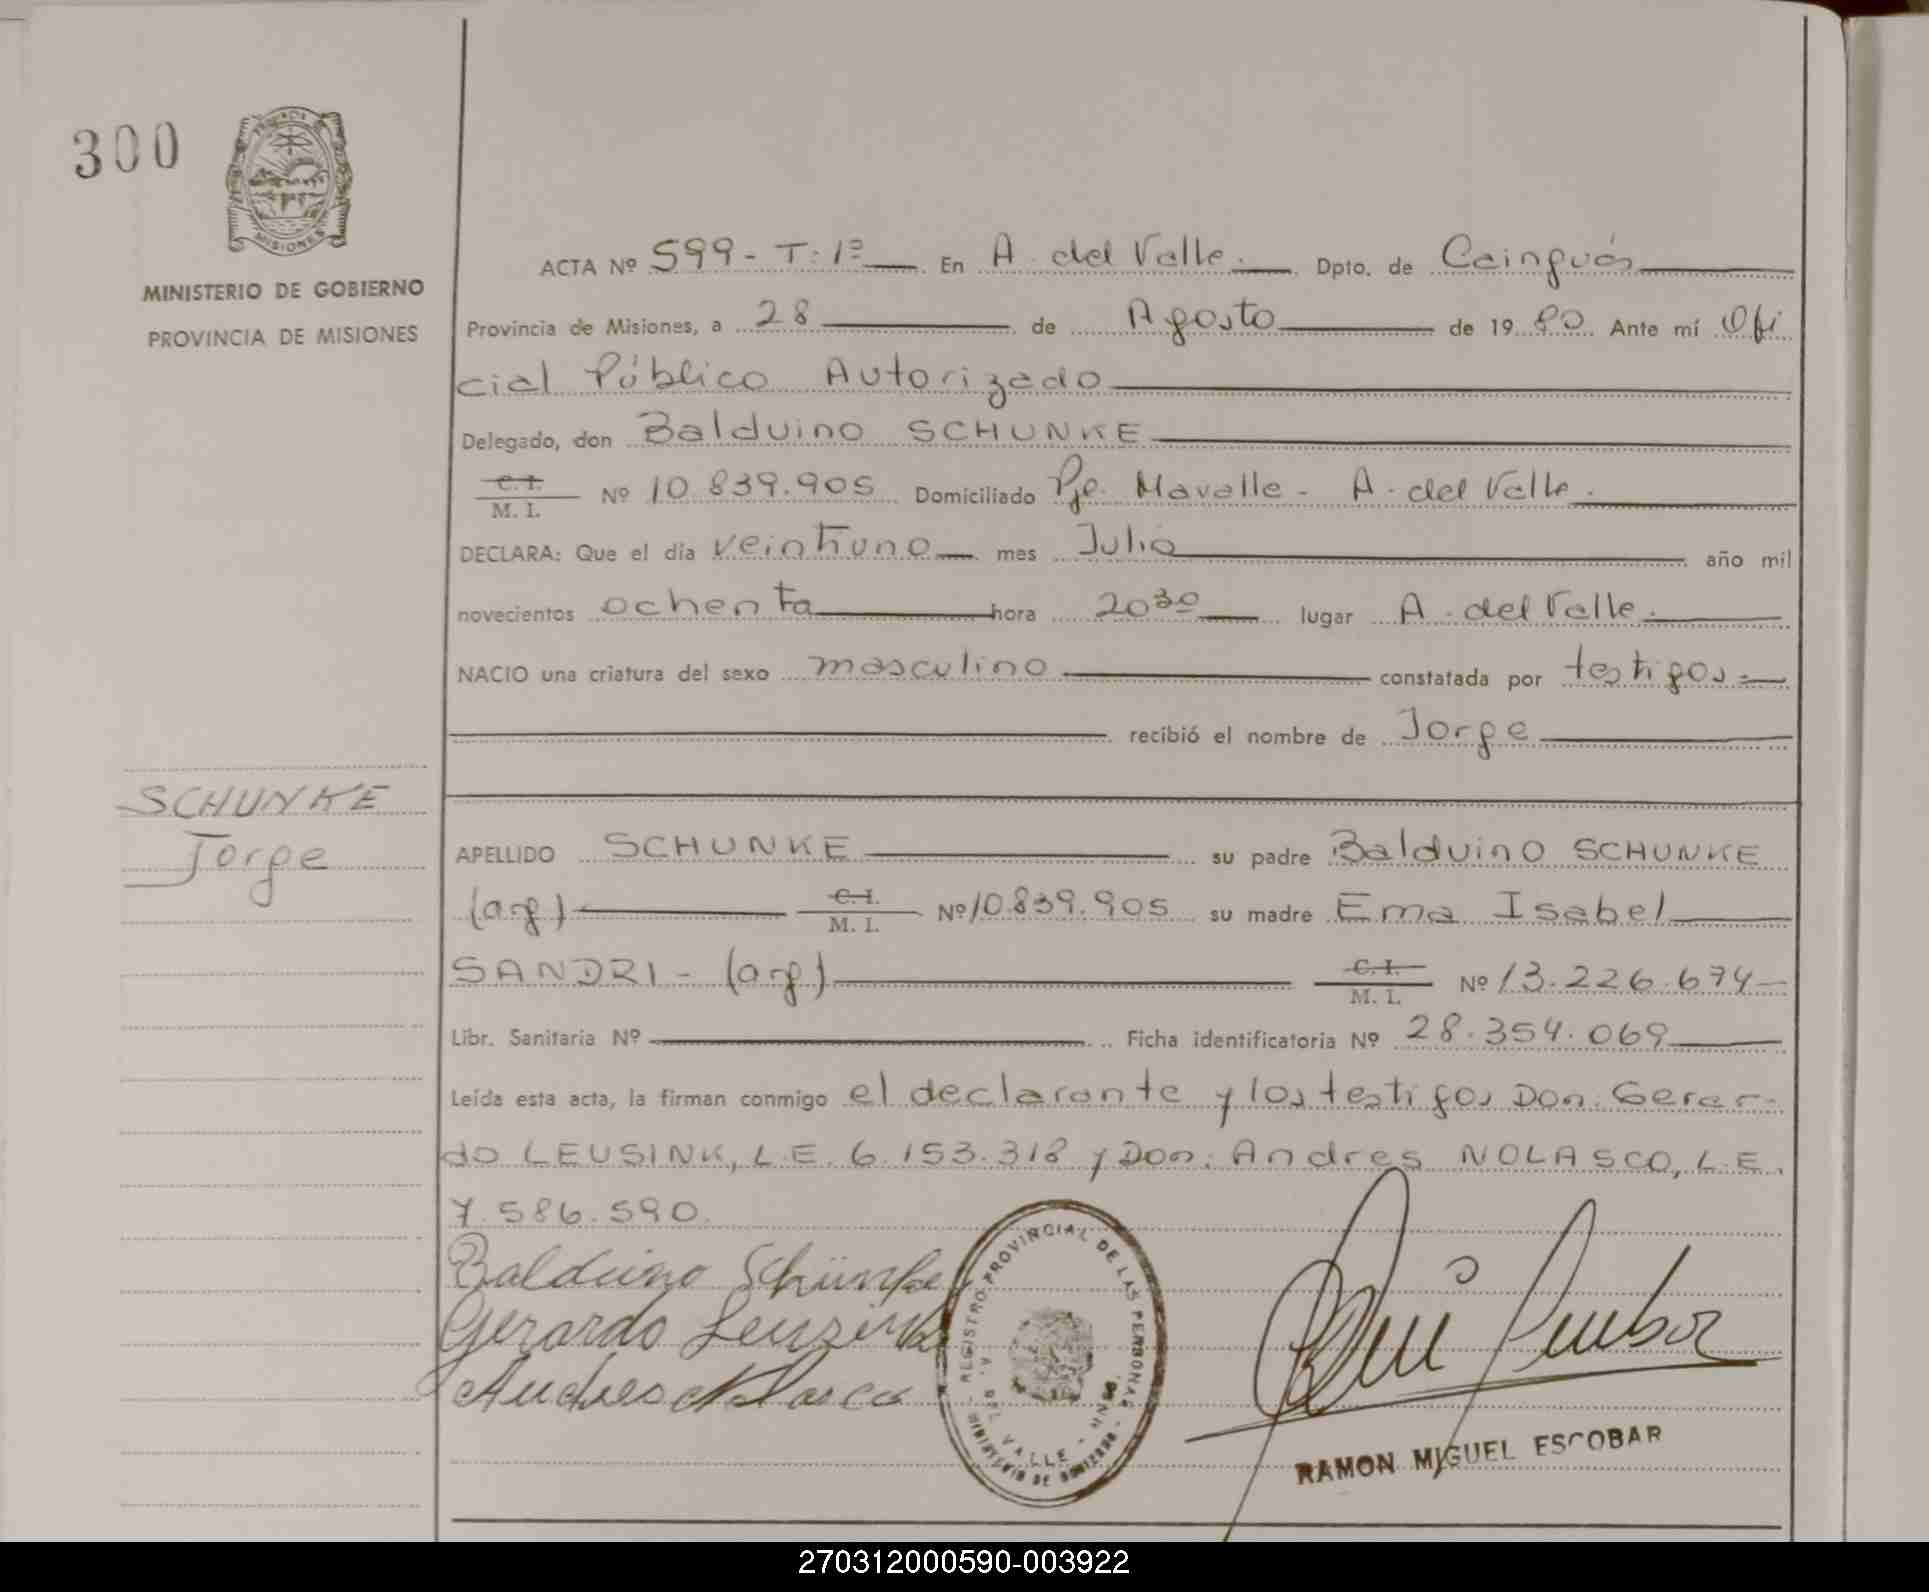 300
MISIONES
MINISTERIO DE GOBIERNO
PROVINCIA DE MISIONES
ACTA Nº 599 - T: 1º En A. del Valle. Dpto. de Cainguás
Provincia de Misiones, a 28 de Agosto de 1980 Ante mí Ofi
cial Público Autorizado
Delegado, don Balduino SCHUNKE
C.I.
M. I. Nº 10.839.905 Domiciliado Pje. Mavalle - A. del Valle.
DECLARA: Que el día veintiuno mes Julio año mil
novecientos ochenta hora 20 30 lugar A. del Valle.
NACIO una criatura del sexo masculino constatada por testigos=
recibió el nombre de Jorge
SCHUNKE
Jorge
APELLIDO SCHUNKE su padre Balduino SCHUNKE
(arg) C.I.
M. I. Nº 10.839.905 su madre Ema Isabel
SANDRI - (arg) C.I.
M. I. Nº 13.226.674
Libr. Sanitaria Nº Ficha identificatoria Nº 28.354.069
Leída esta acta, la firman conmigo el declarante y los testigos Don. Gerar-
do LEUSINK, L.E. 6.153.318 y Don. Andres NOLASCO, L.E.
7.586.590.
Balduino Schünke
Gerardo Leuzink
Andres Nolasco
REGISTRO PROVINCIAL DE LAS PERSONAS
A. DEL VALLE - MNES.
MINISTERIO DE GOBIERNO
RAMON MIGUEL ESCOBAR
270312000590-003922